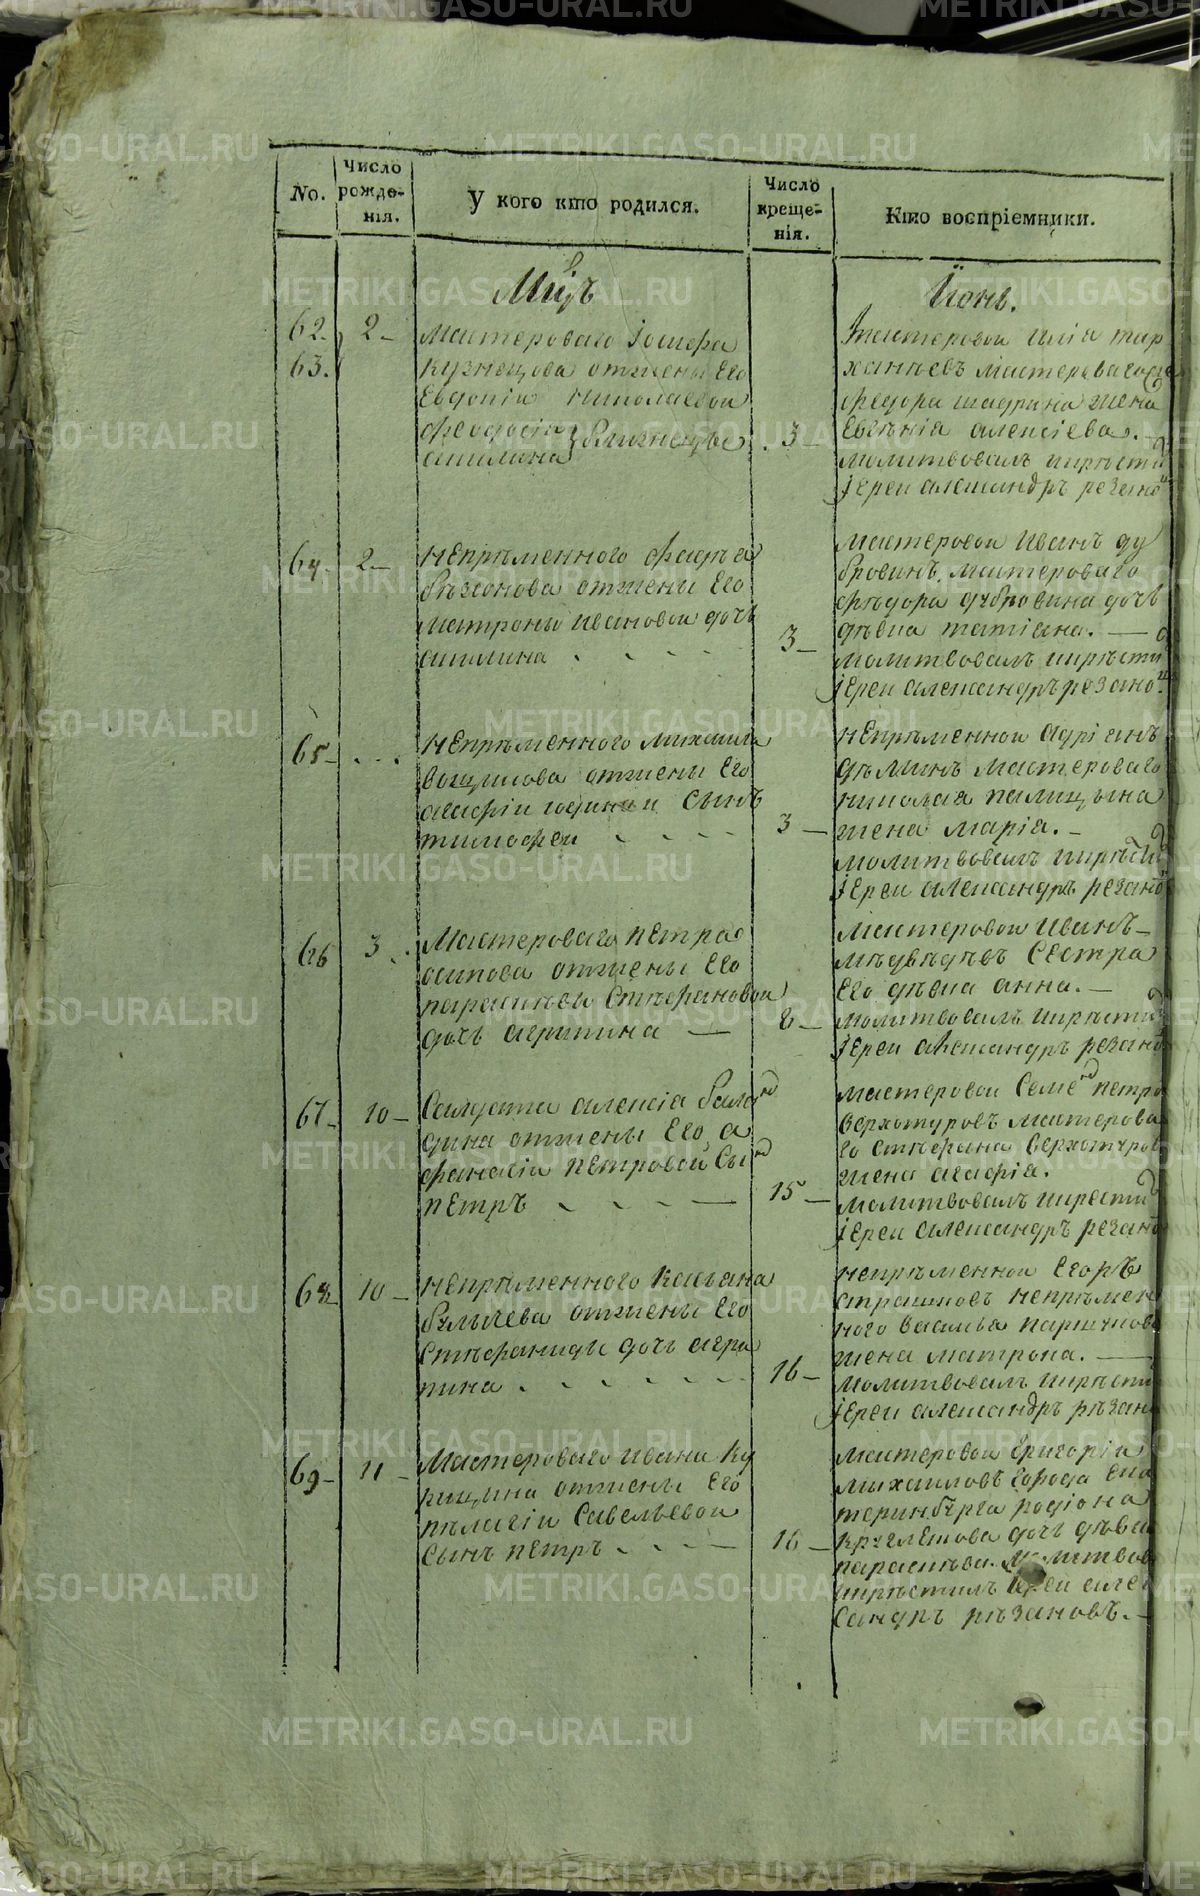 No.
Число рожде-нія.
У кого кто родился.
Число креще-нія.
Кто воспріемники.
Мцъ
Іюнь.
62. 2-
63.
мастероваго Іосифа
кузнецова отжены Его
Евдопіи николаевои
феодосіи
акилина близнецы
3-
мастеровои
ханьевъ мастероваго
федора шадрина жена
Евгѣнія алексіева.
молитвовалъ икрѣсти
Іереи александръ резано
64. 2-
непрѣменного
отжены Его
матроны ивановои дочь
акилина
3-
мастеровои иванъ ду
бровинъ, мастероваго
фѣдора дубровина дочь
дѣвка татіана.
молитвовалъ икрѣсти
Іереи александръ резано
65-
непрѣменного михаила
отжены Его
агафіи сынъ
тимофеи
3-
непрѣменнои адріанъ
дѣминъ мастероваго
николая палицына
жена марія.-
молитвовалъ икрѣсти
Іереи александръ резано
66 3
Мастероваго петра
осипова отжены Его
параскѣви Стѣфановои
дочь агрипина
8-
мастеровои иванъ-
мѣдвѣдѣвъ Сестра
Его дѣвка анна.-
молитвовалъ икрѣсти
Іереи александръ резано
67- 10-
Салдата алексіа бала
дина отжены Его, а
фанасіи петровои Сы
петръ
15-
мастеровои Семе петро
верхотуровъ мастерова
го стѣфана верхотуров
жена агафія.
молитвовалъ икрести
Іереи александръ резано
68- 10-
непрѣменного касьяна
булычева отжены Его
Стѣфаниды дочь агри
пина
16-
непрѣменнои Егоръ
страшковъ непрѣмен
ного василья паршуков
жена матрона.
молитвовалъ икрѣсти
Іереи александръ рѣзан
69- 11-
Мастероваго ивана ку
рицына отжены Его
пѣлагіи Савельевои
Сынъ петръ
16-
мастеровои григоріи
михаиловъ города Ека
теринбурга родіона
круглешова дочь дѣвк
параскѣва. Молитвов
икрѣстилъ Іереи алек
сандръ рѣзановъ.-
METRIKI.GASO-URAL.RU